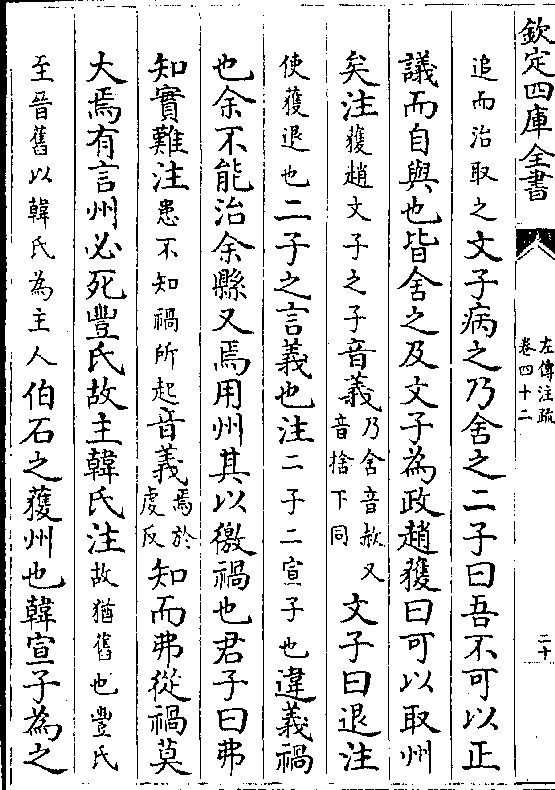 欽定四庫全書
左傳注疏
卷四十二
二十
追而治取之文子病之乃舍之二子曰吾不可以正
議而自與也皆舍之及文子為政趙獲曰可以取州
矣注獲趙文子之子音義乃舍音赦又音捨下同文子曰退注
使獲退也二子之言義也注二子二宣子也違義禍
也余不能治余縣又焉用州其以徼禍也君子曰弗
知實難注患不知禍所起音義焉於虔反知而弗從禍莫
大焉有言州必死豐氏故主韓氏注故猶舊也豐氏
至晉舊以韓氏為主人伯石之獲州也韓宣子為之